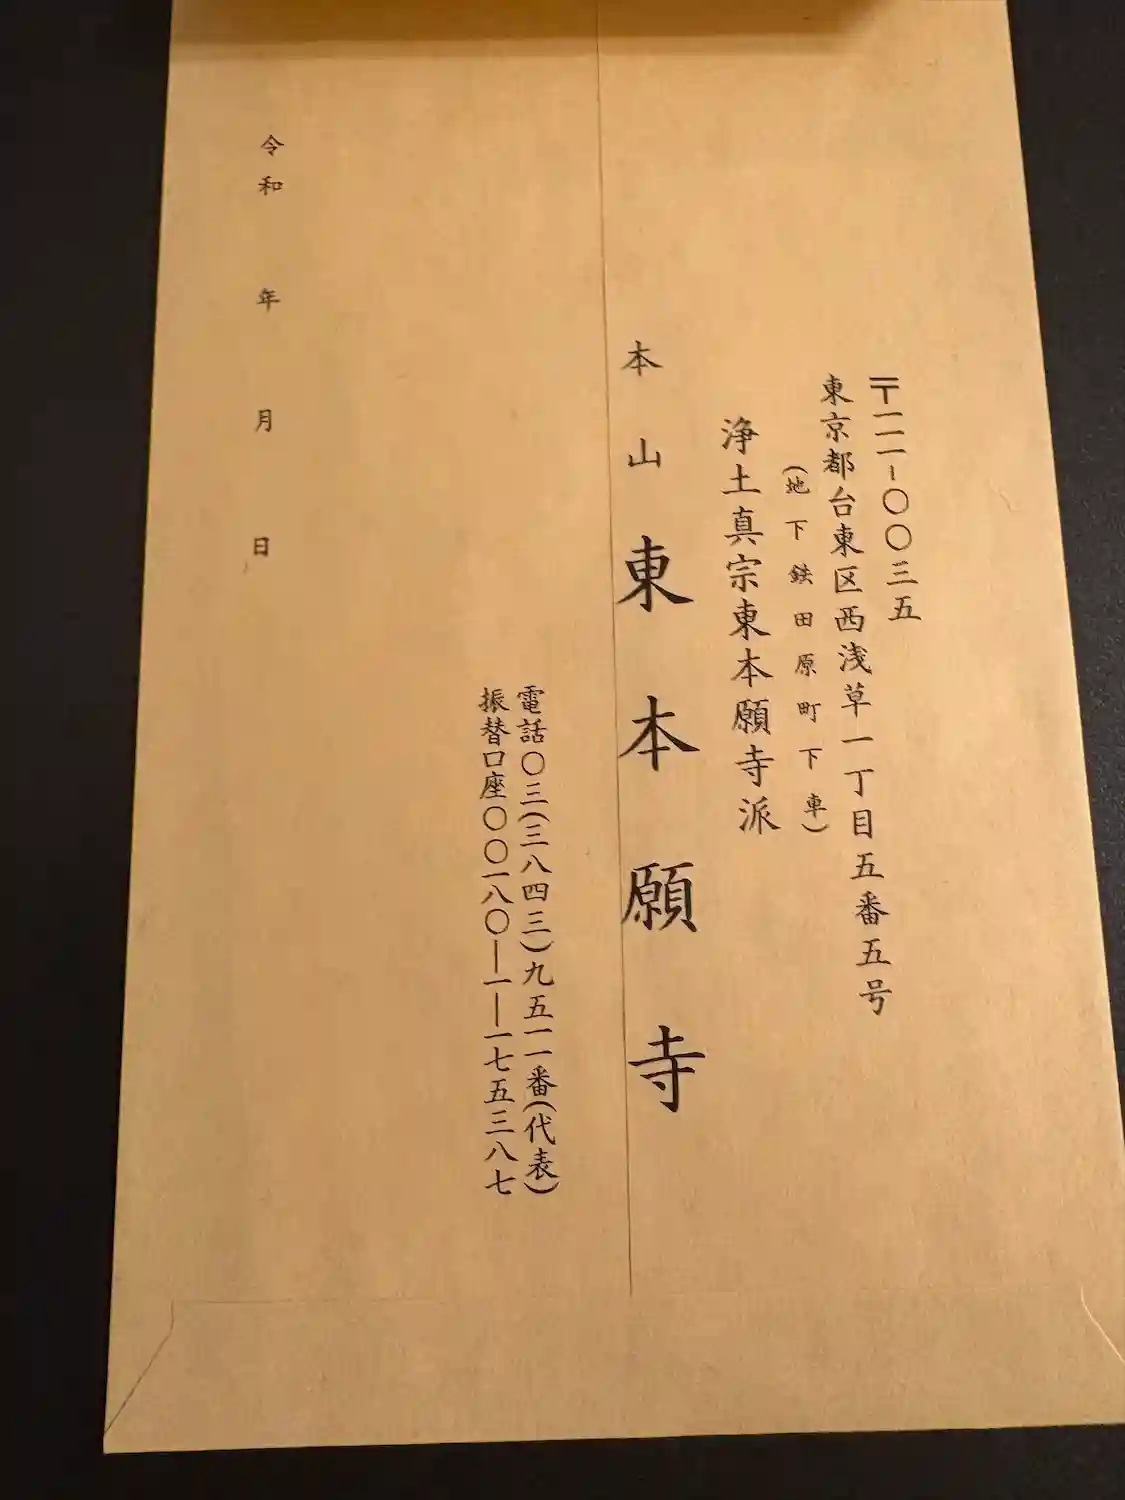 〒一一一-〇〇三五
東京都台東区西浅草一丁目五番五号
(地下鉄田原町下車)
浄土真宗東本願寺派
本山東本願寺
電話〇三(三八四三)九五一一番(代表)
振替口座〇〇一八〇―一―一七五三八七
令和 年 月 日